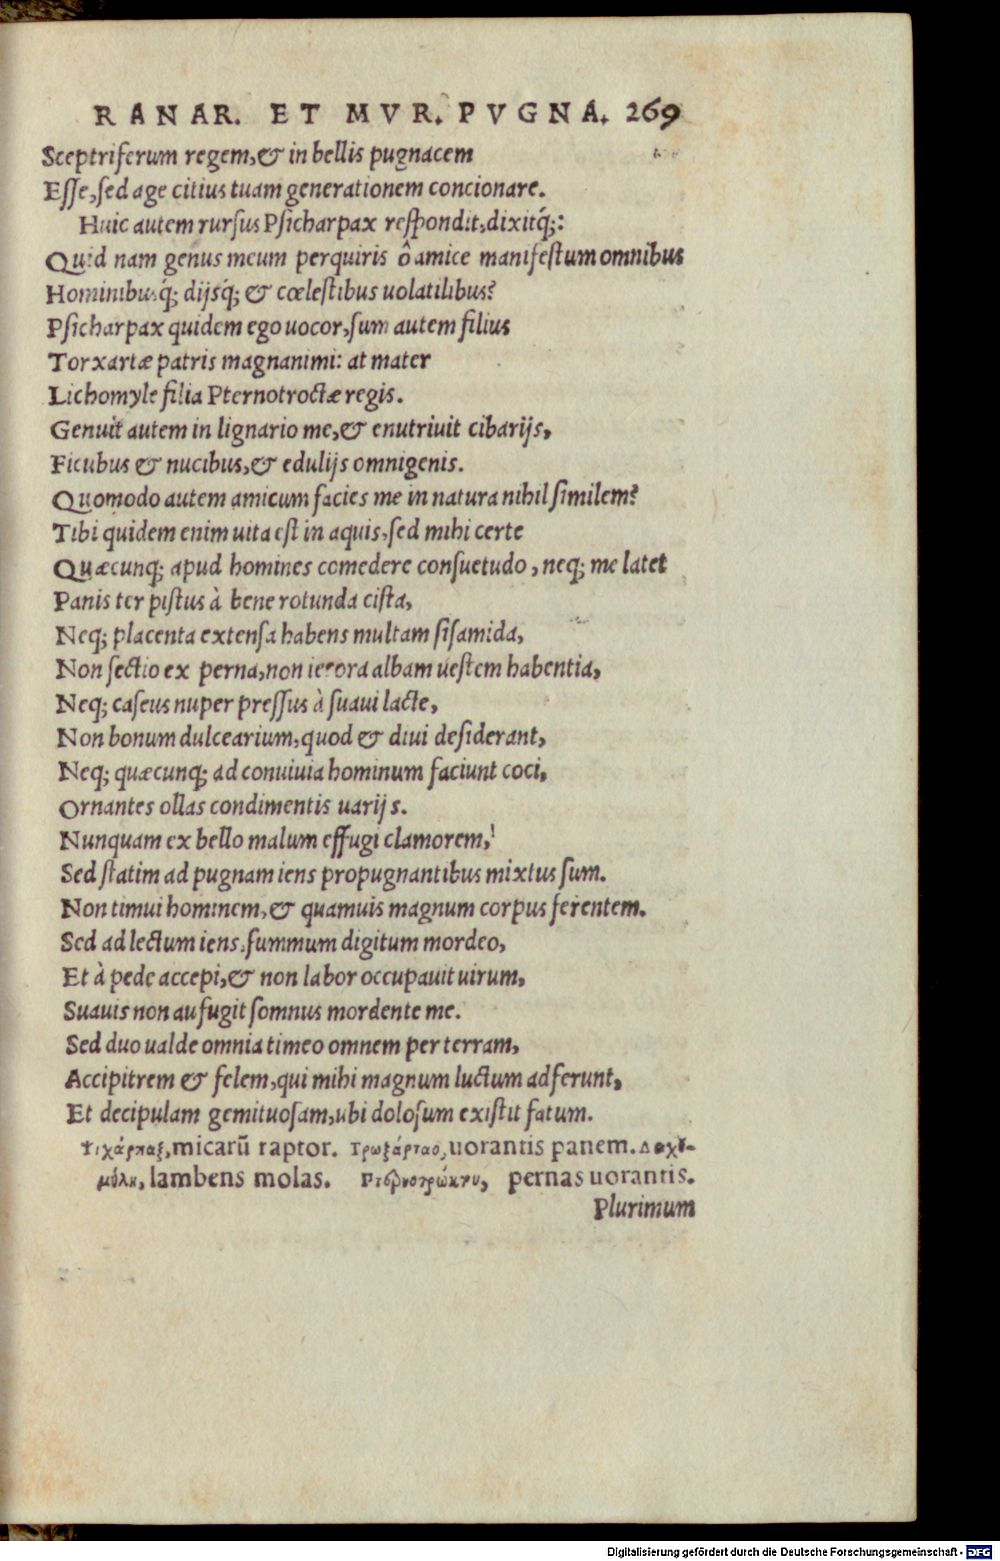 RANAR. ET MVR. PVGNA. 269
Sceptriferum regem,& in bellis pugnacem
Esse, sed age citius tuam generationem concionare.
Huic autem rursus Psicharpax respondit, dixitq́;:
Quid nam genus meum perquiris ô amice manifestum omnibus
Hominibusq́; dijsq́; & cœlestibus uolatilibus?
Psicharpax quidem ego uocor, sum autem filius
Torxartæ patris magnanimi: at mater
Lichomyle filia Pternotroctæ regis.
Genuit autem in lignario me,& enutriuit cibarijs,
Ficubus & nucibus,& edulijs omnigenis.
Quomodo autem amicum facies me in natura nihil similem?
Tibi quidem enim uita est in aquis, sed mihi certe
Quæcunq; apud homines comedere consuetudo, neq; me latet
Panis ter pistus à bene rotunda cista,
Neq; placenta extensa habens multam sisamida,
Non sectio ex perna, non iecora albam uestem habentia,
Neq; caseus nuper pressus à suaui lacte,
Non bonum dulcearium, quod & diui desiderant,
Neq; quæcunq; ad conuiuia hominum faciunt coci,
Ornantes ollas condimentis uarijs.
Nunquam ex bello malum effugi clamorem,
Sed statim ad pugnam iens propugnantibus mixtus sum.
Non timui hominem,& quamuis magnum corpus ferentem.
Sed ad lectum iens, summum digitum mordeo,
Et à pede accepi,& non labor occupauit uirum,
Suauis non aufugit somnus mordente me.
Sed duo ualde omnia timeo omnem per terram,
Accipitrem & felem, qui mihi magnum luctum adferunt,
Et decipulam gemituosam, ubi dolosum existit fatum.
Ψιχάρπαξ, micarū raptor. Τρωξάρταο, uorantis panem. Λειχο-
μύλη, lambens molas. Πτερνοτρώκτου, pernas uorantis.
Plurimum
Digitalisierung gefördert durch die Deutsche Forschungsgemeinschaft - DFG